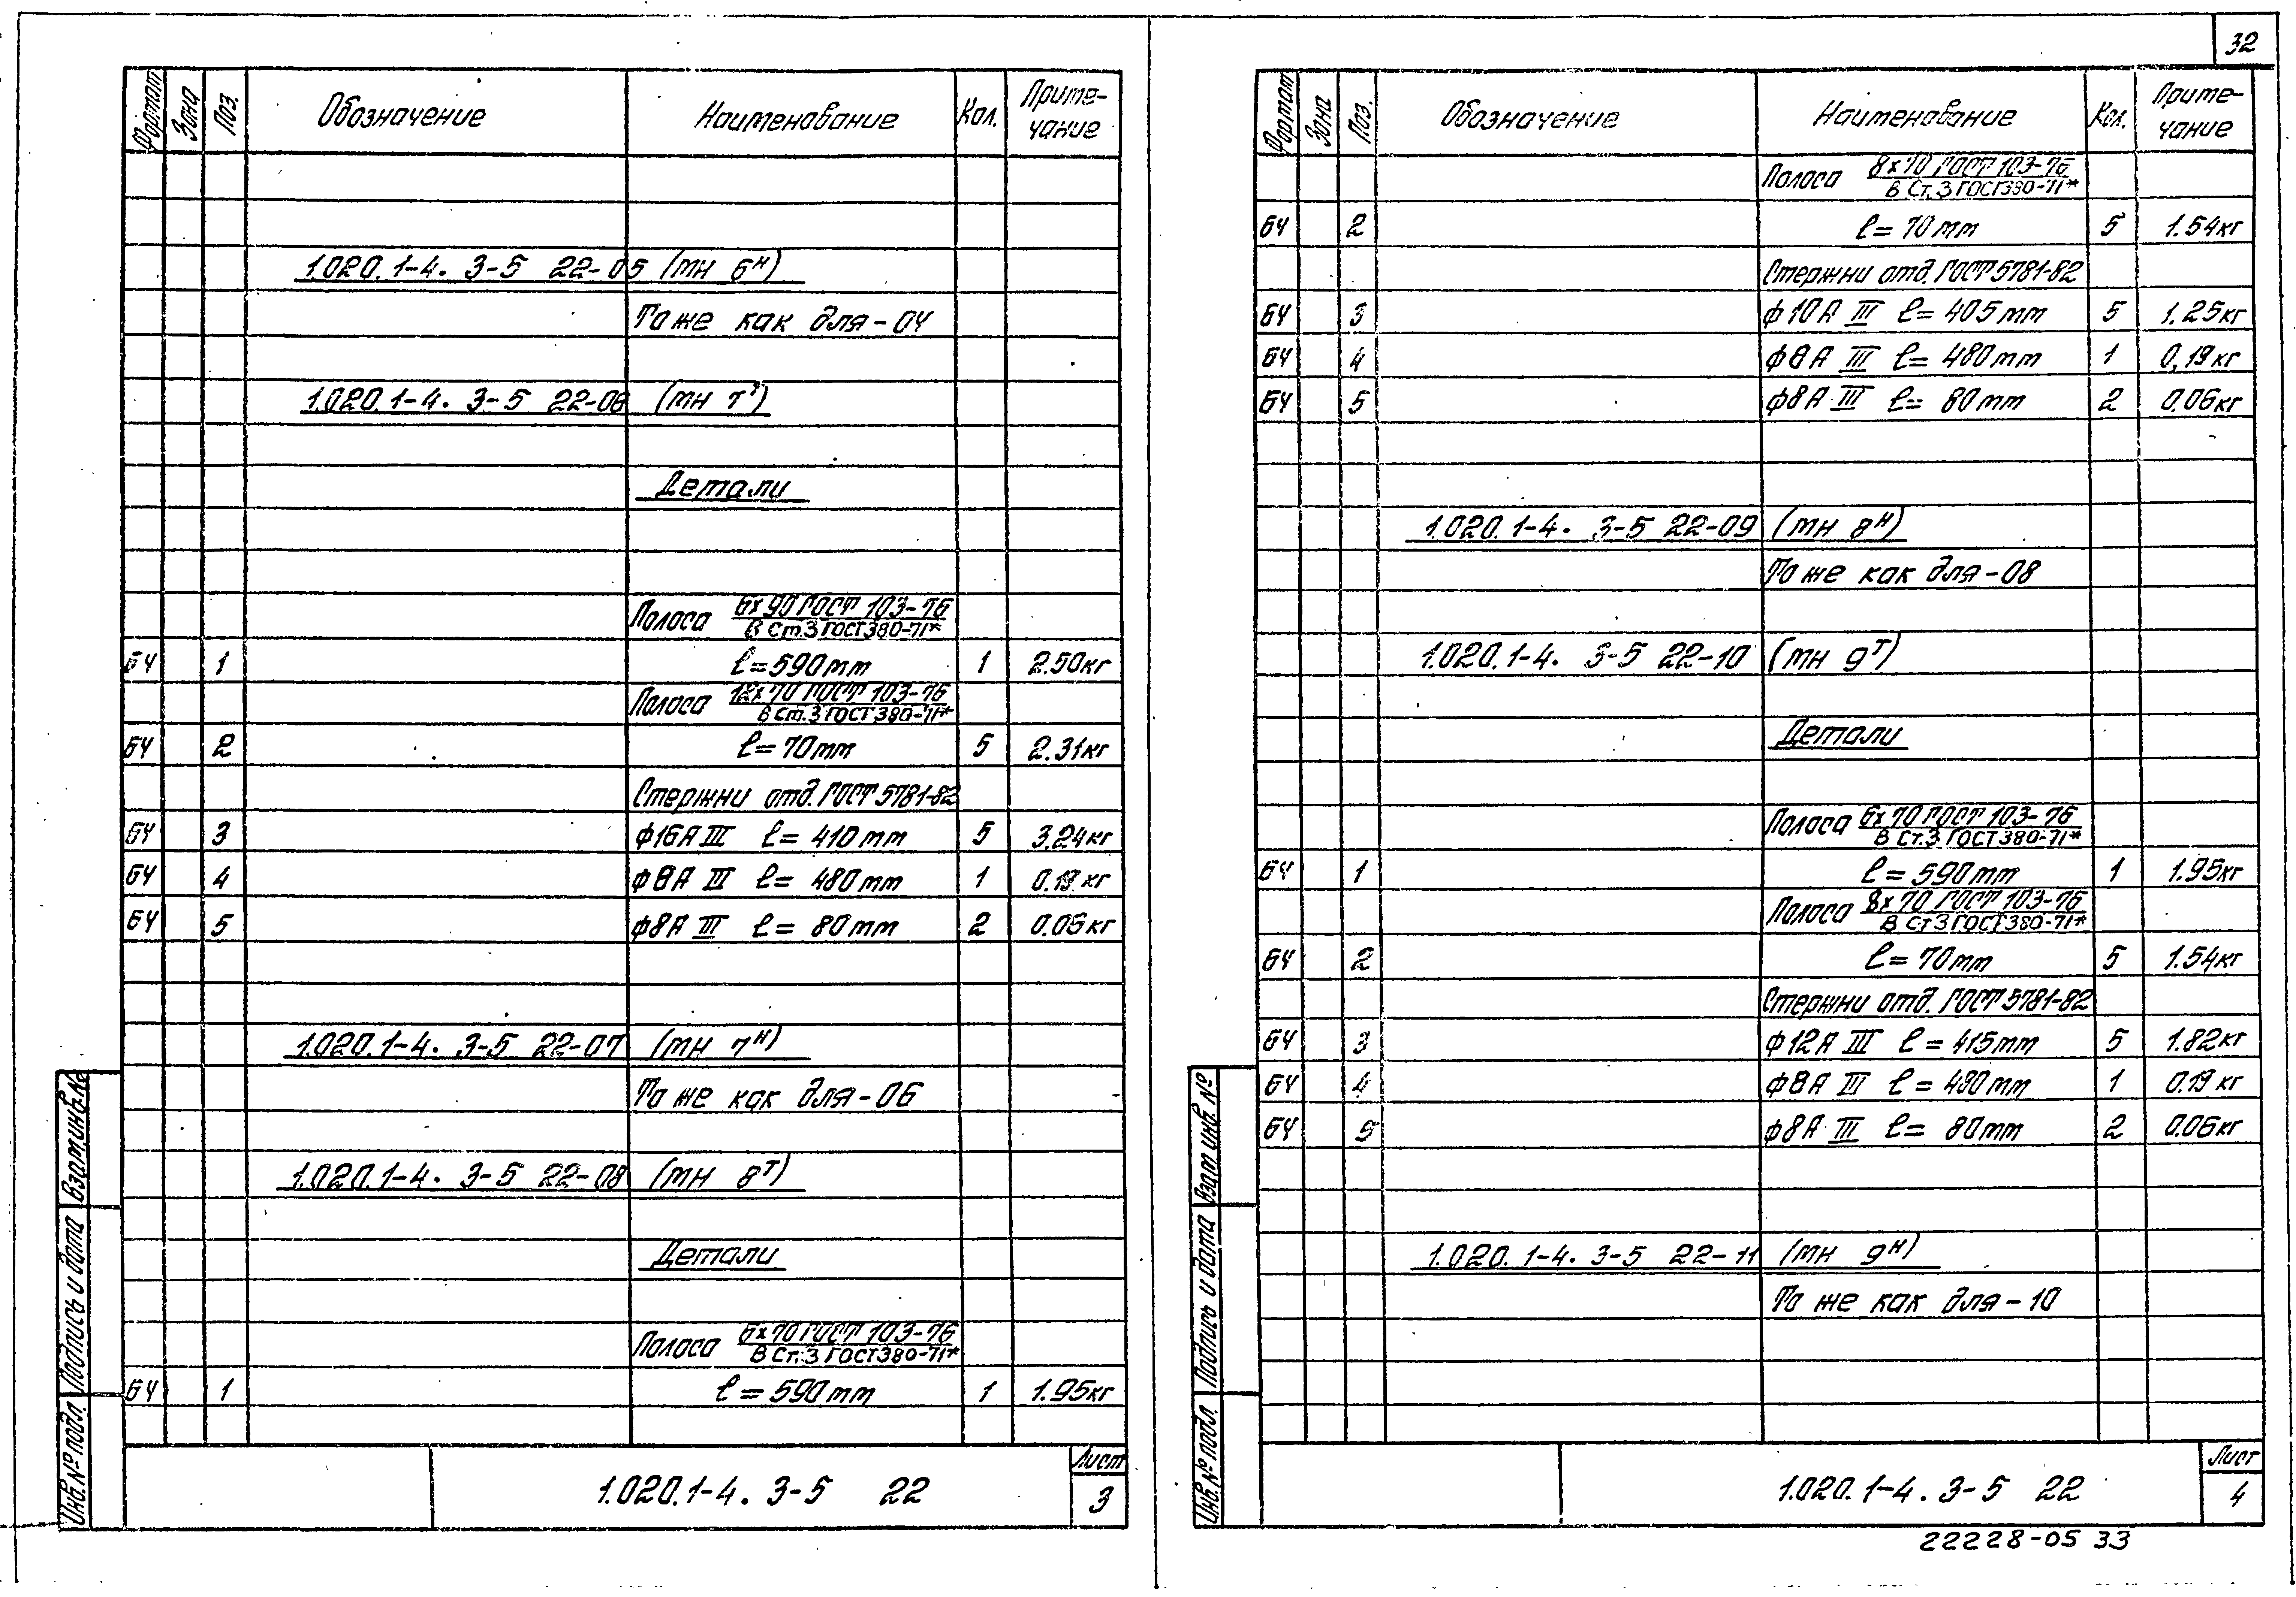 32
Формат Зона Поз. Обозначение Наименование Кол. Приме-
чание
1.020.1-4. 3-5 22-05 (мн 6ᴴ)
То же как для-04
1.020.1-4. 3-5 22-06 (мн 7ᵀ)
Детали
Полоса 6х90 ГОСТ 103-76
В Ст.3 ГОСТ380-71*
БЧ 1 ℓ=590мм 1 2.50кг
Полоса 12х70 ГОСТ 103-76
В Ст.3 ГОСТ 380-71*
БЧ 2 ℓ=70мм 5 2.31кг
Стержни отд. ГОСТ 5781-82
БЧ 3 ф16А III ℓ= 410мм 5 3.24кг
БЧ 4 ф8А III ℓ= 480мм 1 0.19 кг
БЧ 5 ф8А III ℓ= 80мм 2 0.06кг
1.020.1-4. 3-5 22-07 (мн 7ᴴ)
То же как для-06
1.020.1-4. 3-5 22-08 (мн 8ᵀ)
Детали
Полоса 6х70 ГОСТ 103-76
В Ст.3 ГОСТ380-71*
БЧ 1 ℓ=590мм 1 1.95кг
Инв.№ подл. Подпись и дата Взам.инв.№
1.020.1-4. 3-5 22
Лист
3
Формат Зона Поз. Обозначение Наименование Кол. Приме-
чание
Полоса 8х70 ГОСТ 103-76
В Ст.3 ГОСТ380-71*
БЧ 2 ℓ= 70мм 5 1.54кг
Стержни отд. ГОСТ 5781-82
БЧ 3 ф10А III ℓ= 405мм 5 1.25кг
БЧ 4 ф8А III ℓ= 480мм 1 0,19кг
БЧ 5 ф8А III ℓ= 80мм 2 0.06кг
1.020.1-4. 3-5 22-09 (мн 8ᴴ)
То же как для-08
1.020.1-4. 3-5 22-10 (мн 9ᵀ)
Детали
Полоса 6х70 ГОСТ 103-76
В Ст.3 ГОСТ380-71*
БЧ 1 ℓ=590мм 1 1.95кг
Полоса 8х70 ГОСТ 103-76
В Ст3 ГОСТ380-71*
БЧ 2 ℓ=70мм 5 1.54кг
Стержни отд. ГОСТ 5781-82
БЧ 3 ф12А III ℓ=415мм 5 1.82кг
БЧ 4 ф8А III ℓ=480мм 1 0.19 кг
БЧ 5 ф8А III ℓ= 80мм 2 0.06кг
1.020.1-4. 3-5 22-11 (мн 9ᴴ)
То же как для-10
Инв.№ подл. Подпись и дата Взам инв. №
1.020.1-4. 3-5 22
Лист
4
22228-05 33